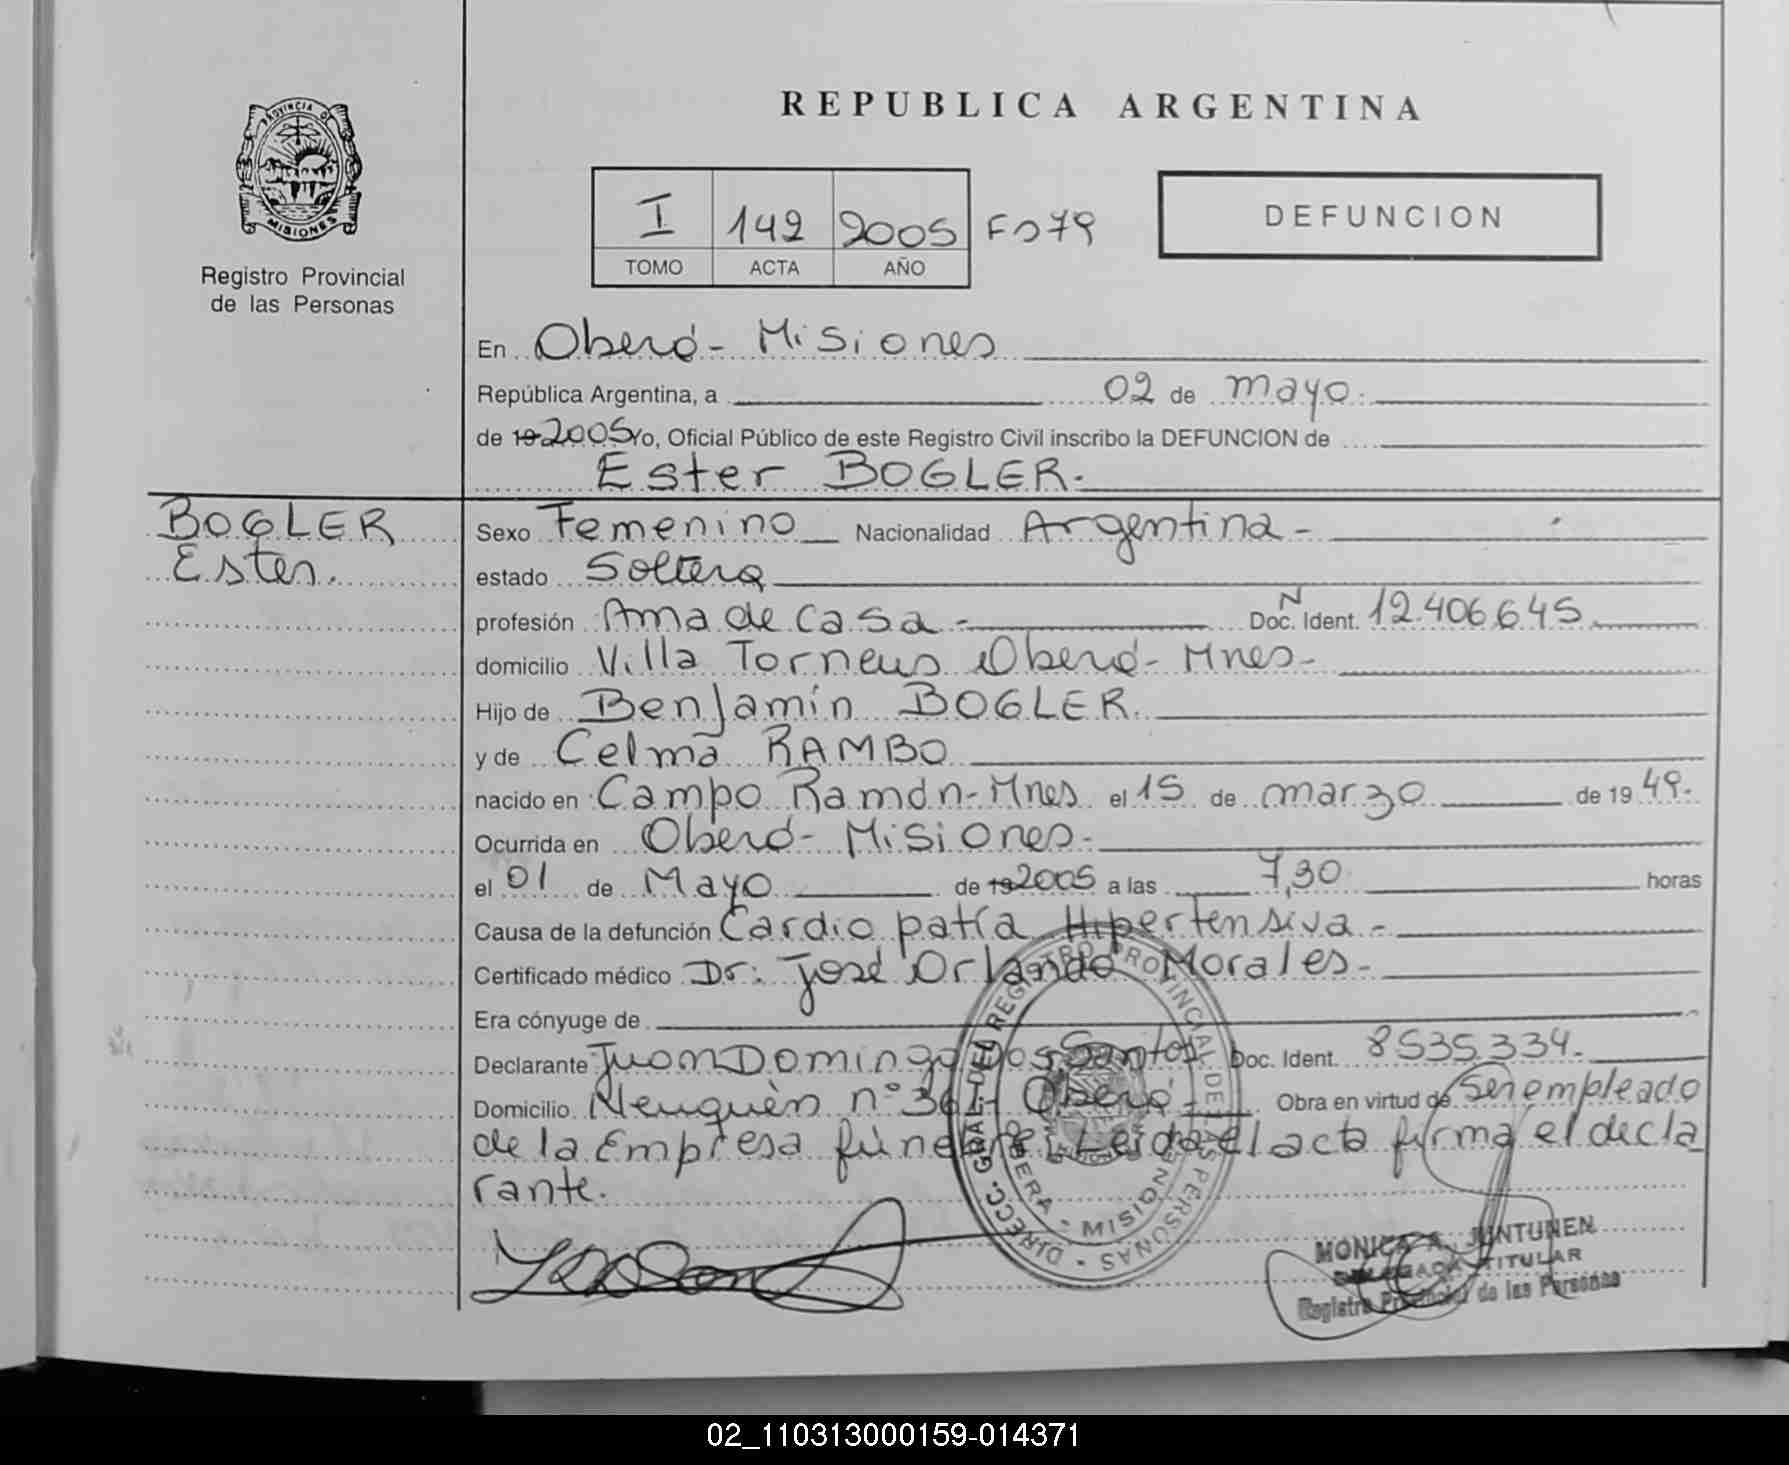 PROVINCIA DE
MISIONES
Registro Provincial
de las Personas
REPUBLICA ARGENTINA
I 142 2005 Fo 79
TOMO ACTA AÑO
DEFUNCION
En Oberá - Misiones
República Argentina, a 02 de mayo.
de 19 2005 Yo, Oficial Público de este Registro Civil inscribo la DEFUNCION de
Ester BOGLER.
BOGLER
Ester.
Sexo Femenino Nacionalidad Argentina -
estado Soltera
profesión Ama de casa - N Doc. Ident. 12.406.645
domicilio Villa Torneus Oberá - Mnes -
Hijo de Benjamín BOGLER.
y de Celma RAMBO
nacido en Campo Ramón - Mnes el 15 de marzo de 19 49.
Ocurrida en Oberá - Misiones -
el 01 de Mayo de 19 2005 a las 7,30 horas
Causa de la defunción Cardio patía Hipertensiva -
Certificado médico Dr: José Orlando Morales -
Era cónyuge de
Declarante Juan Domingo Dos Santos Doc. Ident. 8535.334.
Domicilio Neuquèn n° 36 - Oberá - Obra en virtud de Ser empleado
de la Empresa fúnebre. Leida el acta firma el decla
rante.
DIRECC. GRAL. DEL REGISTRO PROVINCIAL DE LAS PERSONAS
OBERA - MISIONES
MONICA A. JUNTUNEN
DELEGADA TITULAR
Registro Provincial de las Personas
02_110313000159-014371